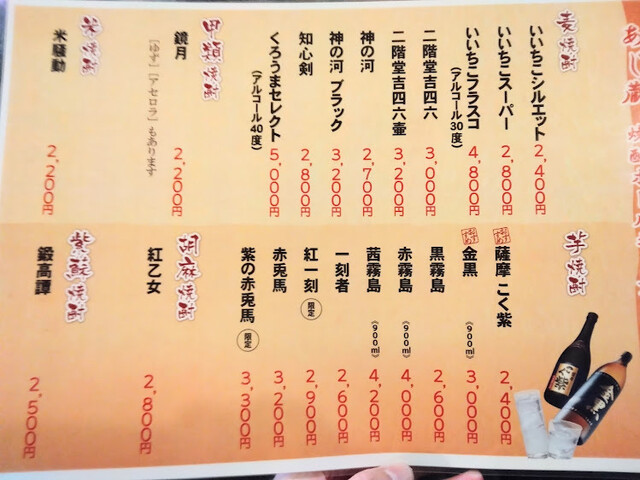 麦焼酎
いいちこシルエット 2,400円
いいちこスーパー 2,800円
いいちこフラスコ (アルコール30度) 4,800円
二階堂吉四六 3,000円
二階堂吉四六壷 3,200円
神の河 2,700円
神の河 ブラック 3,200円
知心剣 2,800円
くろうまセレクト (アルコール40度) 5,000円
甲類焼酎
鏡月 2,200円
［ゆず］［アセロラ］もあります
米焼酎
米騒動 2,200円
芋焼酎
おすすめ 薩摩 こく紫 2,400円
おすすめ 金黒 (900ml) 3,000円
黒霧島 2,600円
赤霧島 (900ml) 4,000円
茜霧島 (900ml) 4,200円
一刻者 2,600円
紅一刻 限定 2,900円
赤兎馬 3,200円
紫の赤兎馬 限定 3,300円
胡麻焼酎
紅乙女 2,800円
紫蘇焼酎
鍛高譚 2,500円